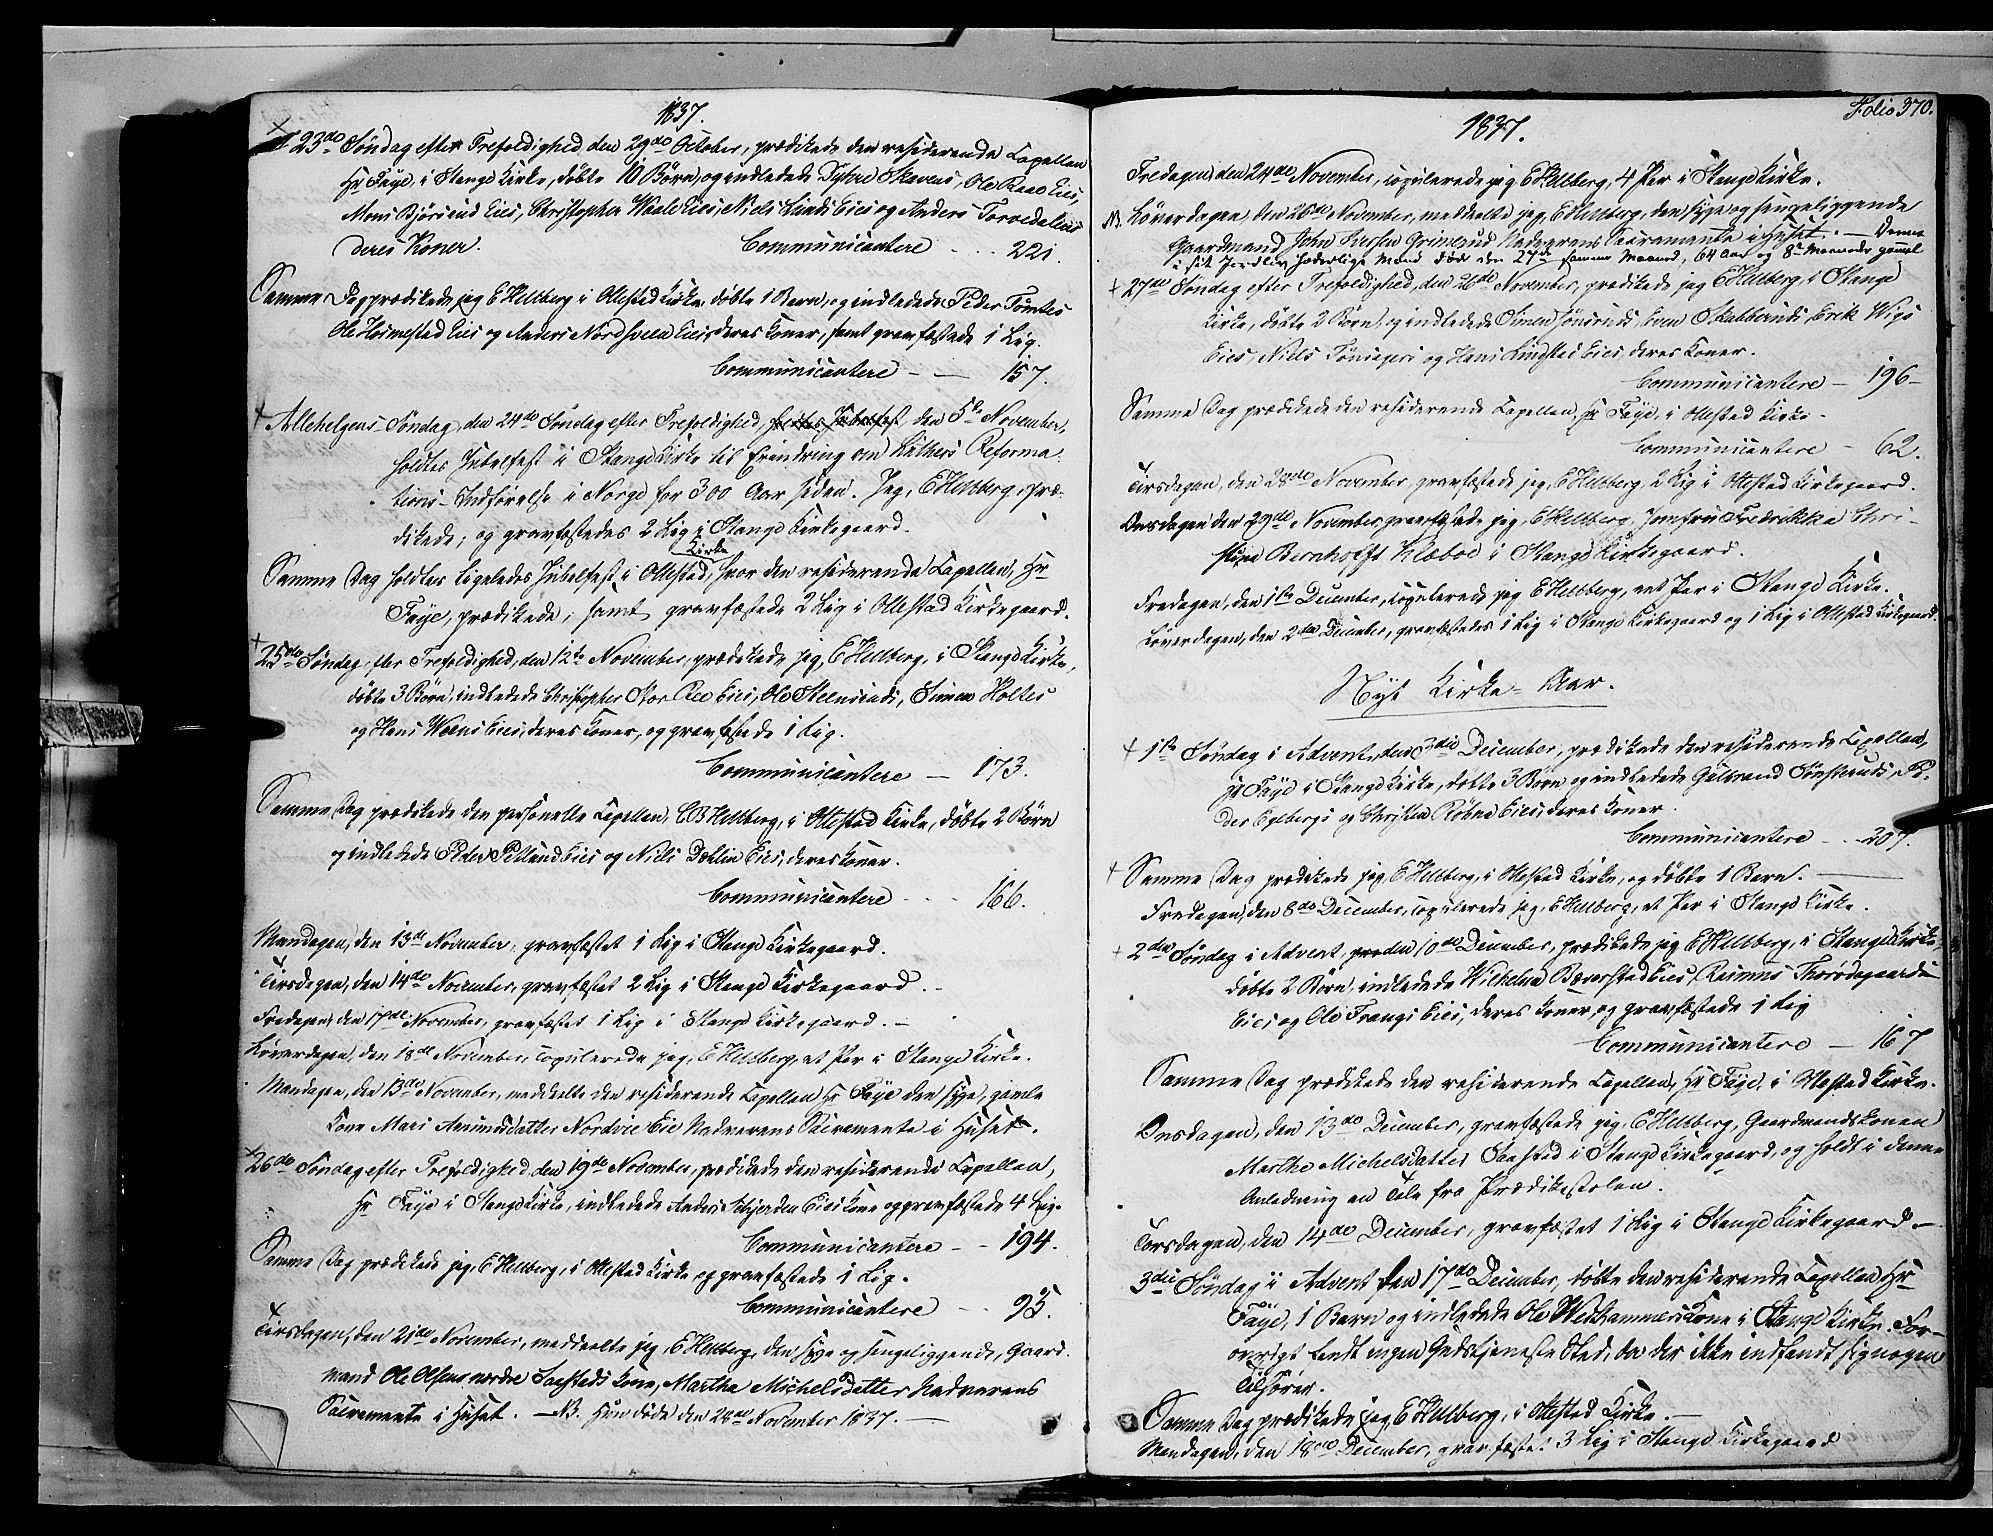 1837.
+ 23de Søndag efter Trefoldighed den 29de October, prædikede den residerende Capellan
Hr Faye, i Stange Kirke, døbte 10 Børn, og indledede Skavens, Ole Raae Eies,
Mons Bjørsrud Eies, Christopher Waale Eies, Niels Lunds Eies og Anders
deres Koner. Communicantere . . . 221.
Samme Dag prædikede jeg E Hellberg i Ottestad Kirke, døbte 1 Barn, og indledede Peder Tomtes
Ole Hermestad Eies og Anders Nordsveen Eies deres Koner, samt gravfæstede 1 Lig.
Communicantere - — 157.
+ Allehelgens Søndag, den 24de Søndag efter Trefoldighed, holdtes Jubelfest, den 5te November,
holdtes Jubelfest i Stange Kirke til Erindring om Luthers Reforma-
tions-Indførelse i Norge for 300 Aar siden. Jeg, E Hellberg, præ-
dikede; og gravfæstedes 2 Lig i Stange Kirkegaard.
Kirke
Samme Dag holdtes ligeledes Jubelfest i Ottestad, hvor den residerende Capellan, Hr
Faye, prædikede; samt gravfæstede 2 Lig i Ottestad Kirkegaard.
+ 25de Søndag efter Trefoldighed, den 12te November, prædikede jeg, E Hellberg, i Stange Kirke,
døbte 3 Børn, indledede Christopher Stor Ree Eies, Ole Steensruds, Simen Holtes
og Hans Weens Eies, deres Koner, og gravfæstede 1 Lig.
Communicantere — 173.
Samme Dag prædikede den personelle Capellan, C B Hellberg, i Ottestad Kirke, døbte 2 Børn
og indledede Peder Eies og Niels Dahlin Eies, deres Koner.
Communicantere . . . 166.
Mandagen, den 13de November, gravfæstet 1 Lig i Stange Kirkegaard.
Tirsdagen, den 14de November, gravfæstet 2 Lig i Stange Kirkegaard. -
Fredagen, den 17de November, gravfæstet 1 Lig i Stange Kirkegaard. -
Løverdagen, den 18de November, copulerede jeg, E Hellberg, et Par i Stange Kirke.
Mandagen, den 13de November, meddeelte den residerende Capellan Hr Faye den syge, gamle
Kone Mari Amundsdatter Nordvie Eie Nadverens Sacramente i Huset.
+ 26de Søndag efter Trefoldighed, den 19de November, prædikede den residerende Capellan,
Hr Faye i Stange Kirke, indledede Anders Eies Kone og gravfæstede 4 Lig.
Communicantere - - 194.
Samme Dag prædikede jeg, E Hellberg, i Ottestad Kirke og gravfæstede 1 Lig.
Communicantere - - 95.
Tirsdagen, den 21de November, meddeelte jeg, E Hellberg, den syge og sengeliggende, Gaard-
mand Ole Olsens nordre Saastads Kone, Marthe Michelsdatter Nadverens
Sacramente i Huset. — NB. Hun døde den 28de November 1837. —
Folio 370.
1837.
Fredagen, den 24de November, copulerede jeg E Hellberg, 4 Par i Stange Kirke.
NB. Løverdagen, den 25de November, meddeelte jeg, E Hellberg, den syge og sengeliggende
Gaardmand John Iversen Grimerud Nadverens Sacramente i Huset. — Denne
i sit Jordliv hæderlige Mand døde den 27de samme Maaned, 64 Aar og 8te Maaneder gammel
+ 27de Søndag efter Trefoldighed, den 26de November, prædikede jeg E Hellberg, i Stange
Kirke, døbte 2 Børn, og indledede Simen Sønsruds, Even Skabberuds, Erik Wigs
Eies, Niels Tønsagers og Hans Lindstad Eies deres Koner.
Communicantere — 196 -
Samme Dag prædikede den residerende Capellan, Hr Faye, i Ottestad Kirke.
Communicantere - 62.
Tirsdagen, den 28de November, gravfæstede jeg, E Hellberg 2 Lig i Ottestad Kirkegaard.
Onsdagen den 29de November, gravfæstede jeg E Hellberg, Jomfru Fredrikka Chri-
stine Bernhoft Klæboe i Stange Kirkegaard.
Fredagen, den 1ste December, copulerede jeg E Hellberg, eet Par i Stange Kirke.
Løverdagen, den 2den December, gravfæstedes 1 Lig i Stange Kirkegaard og 1 Lig i Ottestad Kirkegaard.
Nyt Kirke-Aar.
+ 1ste Søndag i Advent, den 3die December, prædikede den residerende Capellan,
Hr Faye i Stange Kirke, døbte 3 Børn og indledede Gulbrand Sønsteruds, Pe-
der Egebergs og Christen Røbne Eies, deres Koner.
Communicantere - . 207.
+ Samme Dag prædikede jeg, E Hellberg, i Ottestad Kirke, og døbte 1 Barn. —
Fredagen, den 8de December, copulerede jeg, E Hellberg, et Par i Stange Kirke.
+ 2den Søndag i Advent, den 10de December, prædikede jeg E Hellberg, i Stange Kirke,
døbte 2 Børn, indledede Wilhelm Bæverstad Eies, Rasmus Thorødegaards
Eies og Ole Frangs Eies, deres Koner, og gravfæstede 1 Lig
Communicantere — 167
Samme Dag prædikede den residerende Capellan, Hr Faye, i Ottestad Kirke.
Onsdagen, den 13de December, gravfæstede jeg, E Hellberg, Gaardmandskonen
Marthe Michelsdatter Saastad i Stange Kirkegaard, og holdt i denne
Anledning en Tale fra Prædikestolen.
Torsdagen, den 14de December, gravfæstet 1 Lig i Stange Kirkegaard. —
3die Søndag i Advent den 17de December, døbte den residerende Capellan Hr
Faye, 1 Barn og indledede Ole Wedhammers Kone i Stange Kirke. For-
øvrigt fandt ingen Gudstjeneste Sted, da der ikke indfandt sig nogen
Tilhører.
Samme Dag prædikede jeg, E Hellberg, i Ottestad Kirke. —
Mandagen, den 18de December, gravfæstet 3 Lig i Stange Kirkegaard